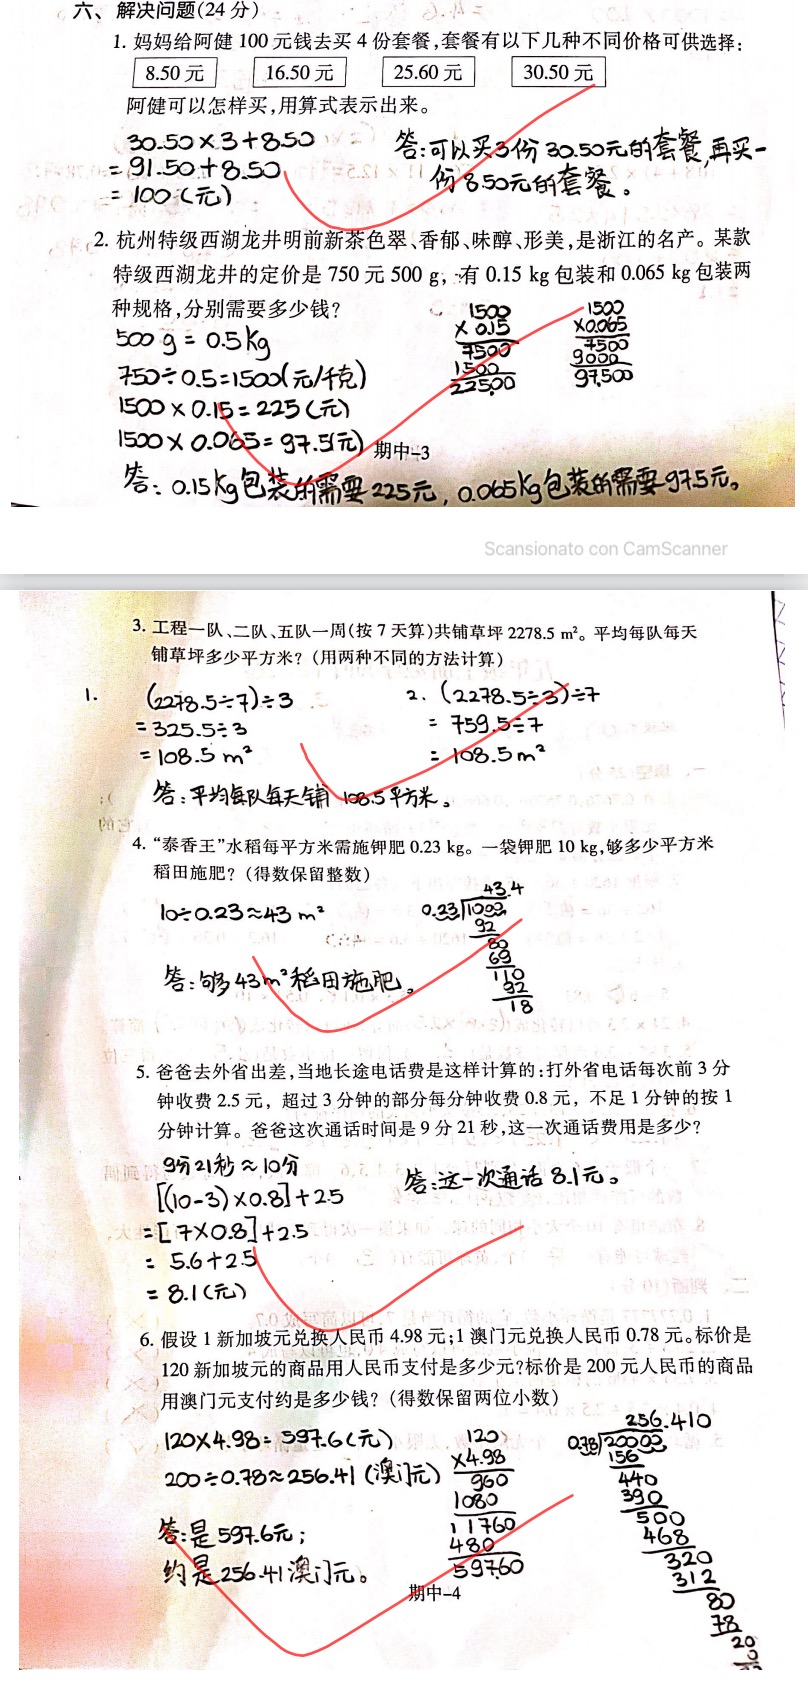 六、解决问题(24分)
1. 妈妈给阿健100元钱去买4份套餐,套餐有以下几种不同价格可供选择:
8.50元 16.50元 25.60元 30.50元
阿健可以怎样买,用算式表示出来。
30.50×3+8.50
=91.50+8.50
=100(元)
答:可以买3份30.50元的套餐,再买一
份8.50元的套餐。
2. 杭州特级西湖龙井明前新茶色翠、香郁、味醇、形美,是浙江的名产。某款
特级西湖龙井的定价是750元500 g,有0.15 kg包装和0.065 kg包装两
种规格,分别需要多少钱?
500 g = 0.5kg
750÷0.5=1500(元/千克)
1500×0.15=225(元)
1500×0.065=97.5(元)
1500
×0.15
7500
1500
225.00
1500
×0.065
7500
9000
97.500
期中-3
答:0.15kg包装的需要225元,0.065kg包装的需要97.5元。
Scansionato con CamScanner
3. 工程一队、二队、五队一周(按7天算)共铺草坪2278.5 m²。平均每队每天
铺草坪多少平方米?(用两种不同的方法计算)
1. (2278.5÷7)÷3
=325.5÷3
=108.5 m²
2. (2278.5÷3)÷7
= 759.5÷7
= 108.5m²
答:平均每队每天铺108.5平方米。
4. “泰香王”水稻每平方米需施钾肥0.23 kg。一袋钾肥10 kg,够多少平方米
稻田施肥?(得数保留整数)
10÷0.23≈43 m²
43.4
0.23 1000
92
80
69
110
92
18
答:够43m²稻田施肥。
5. 爸爸去外省出差,当地长途电话费是这样计算的:打外省电话每次前3分
钟收费2.5元,超过3分钟的部分每分钟收费0.8元,不足1分钟的按1
分钟计算。爸爸这次通话时间是9分21秒,这一次通话费用是多少?
9分21秒≈10分
[(10-3)×0.8]+2.5
=[7×0.8]+2.5
= 5.6+2.5
= 8.1(元)
答:这一次通话8.1元。
6. 假设1新加坡元兑换人民币4.98元;1澳门元兑换人民币0.78元。标价是
120新加坡元的商品用人民币支付是多少元?标价是200元人民币的商品
用澳门元支付约是多少钱?(得数保留两位小数)
120×4.98=597.6(元)
200÷0.78≈256.41(澳门元)
答:是597.6元;
约是256.41澳门元。
120
×4.98
960
1080
11760
480
597.60
256.410
0.78 20000
156
440
390
500
468
320
312
80
78
20
期中-4